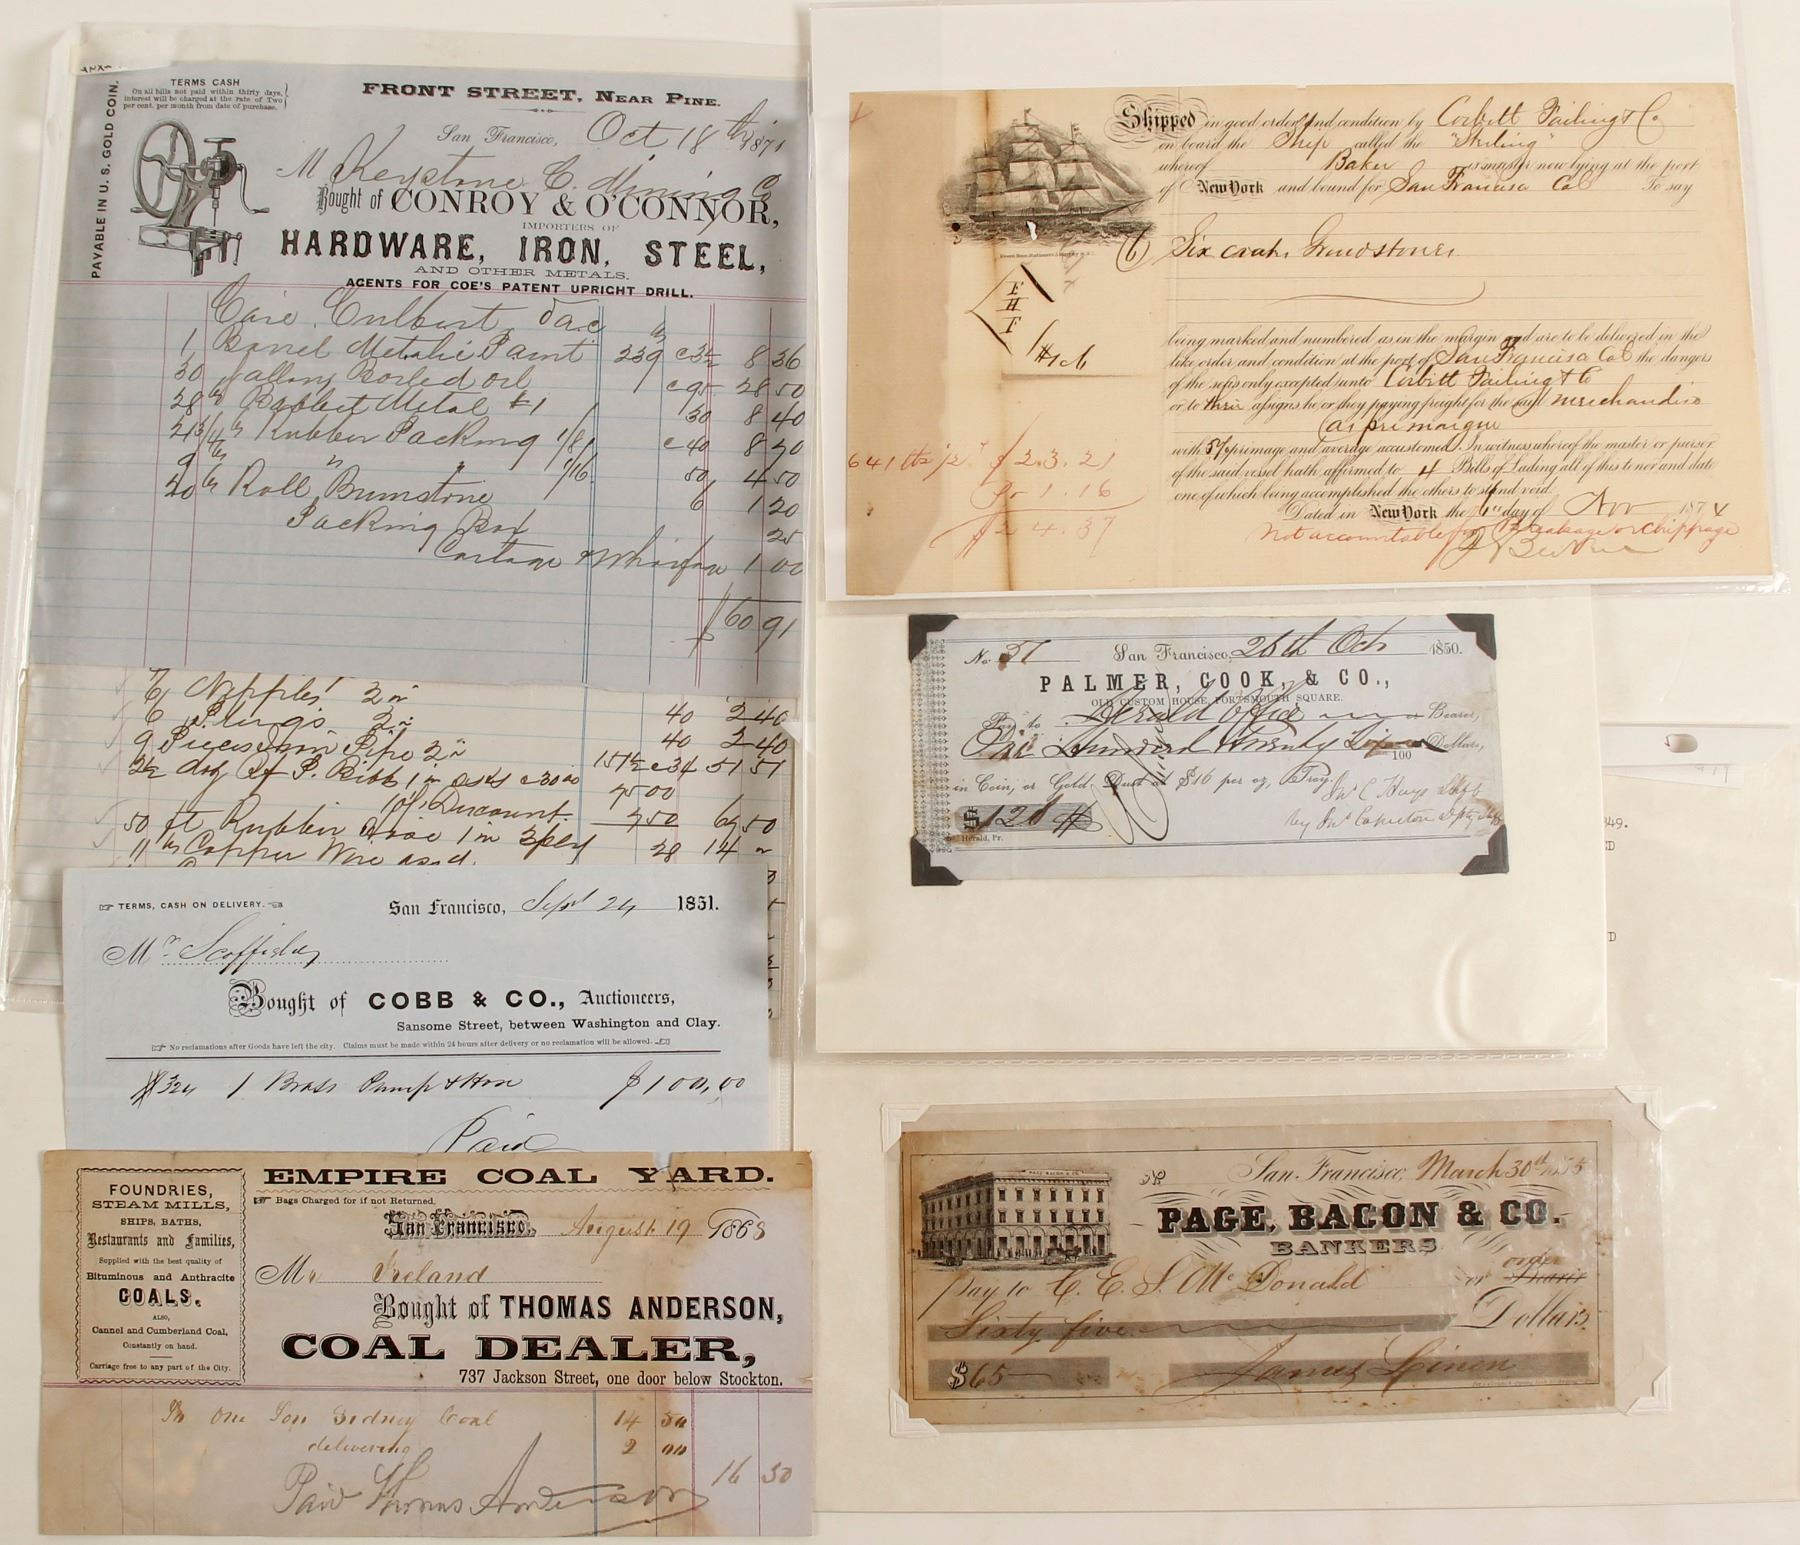 PAYABLE IN U. S. GOLD COIN.
TERMS CASH
On all bills not paid within thirty days,
interest will be charged at the rate of Two
per cent. per month from date of purchase.
FRONT STREET, NEAR PINE.
San Francisco, Oct 18th 1871
M Keystone C. Mining Co
Bought of CONROY & O'CONNOR,
IMPORTERS OF
HARDWARE, IRON, STEEL,
AND OTHER METALS.
AGENTS FOR COE'S PATENT UPRIGHT DRILL.
Care Culbert
1 Barrel Metalic Paint 239 c3½ 8 36
30 gallons Boiled oil c95 28 50
28 Babbet Metal #1 30 8 40
Rubber Packing 1/8 c40
1/16 50 4 50
20 Roll Brimstone 6 1 20
Packing Box 25
Cartage & Wharfage 1 00
$60 91
6 Nipples 2 in 40 2 40
6 2 in 40 2 40
9 Pieces Iron Pipe 2 in 151½ c34 51 51
2½ doz Bibb 1 in
10% Discount 7 50 67 50
50 ft Rubber Hose 1 in 3 ply 28 14
11 lbs Copper Wire assd.
TERMS, CASH ON DELIVERY.
San Francisco, Sept 24 1851.
Mr.
Bought of COBB & CO., Auctioneers,
Sansome Street, between Washington and Clay.
No reclamations after Goods have left the city. Claims must be made within 24 hours after delivery or no reclamation will be allowed.
324 1 Brass Pump & Hose $100,00
Paid
FOUNDRIES,
STEAM MILLS,
SHIPS, BATHS,
Restaurants and Families,
Supplied with the best quality of
Bituminous and Anthracite
COALS.
ALSO,
Cannel and Cumberland Coal,
Constantly on hand.
Carriage free to any part of the City.
EMPIRE COAL YARD.
Bags Charged for if not Returned.
San Francisco, August 19 1868
Mr Ireland
Bought of THOMAS ANDERSON,
COAL DEALER,
737 Jackson Street, one door below Stockton.
To One Ton Sidney Coal 14 50
delivering 2 00
16 50
Paid Thomas Anderson
Shipped in good order and condition by Corbitt Failing & Co
on board the Ship called the "Sterling"
whereof Baker is master now lying at the port
of New York and bound for San Francisco Cal To say
(6) Six crates Grindstones
F
H
F
#1 c6
being marked and numbered as in the margin and are to be delivered in the
like order and condition at the port of San Francisco Cal the dangers
of the seas only excepted unto Corbitt Failing & Co
or to their assigns he or they paying freight for the said merchandise
with 5% primage and average accustomed. In witness whereof the master or purser
of the said vessel hath affirmed to 4 Bills of Lading all of this tenor and date
one of which being accomplished the others to stand void.
Dated in New York the day of Nov 1874
Not accountable for Breakage or Chippage
$23.21
1.16
$24.37
No. 37 San Francisco, 26th Oct 1850.
PALMER, COOK, & CO.,
OLD CUSTOM HOUSE, PORTSMOUTH SQUARE.
Pay to Herald Office or Bearer,
One Hundred Twenty Six /100 Dollars,
in Coin, or Gold Dust at $16 per oz, Troy.
$126
Jno C Hays Shff
Herald, Pr.
49.
D
D
No San Francisco, March 30th 1855
PAGE BACON & CO.
PAGE, BACON & CO.
BANKERS
Pay to C. E. S. McDonald or Bearer order
Sixty five Dollars
$65 James Linen